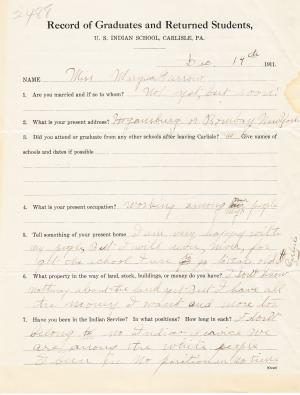 2489
Record of Graduates and Returned Students,
U. S. INDIAN SCHOOL, CARLISLE, PA.
Dec. 19th 1911.
NAME Miss
1. Are you married and if so to whom? Not yet, but soon!
2. What is your present address? Hogansburg or Bombay New York
3. Did you attend or graduate from any other schools after leaving Carlisle? no Give names of
schools and dates if possible
4. What is your present occupation? Working among my people
5. Tell something of your present home I am very happy with
my people, But I will
all the school I use to go
6. What property in the way of land, stock, buildings, or money do you have? I don't know
nothing about the land yet But I have all
the money I want and more too
7. Have you been in the Indian Service? In what positions? How long in each? I don't
belong to no Indian service we
are among the white people
I been in No position
(Over)